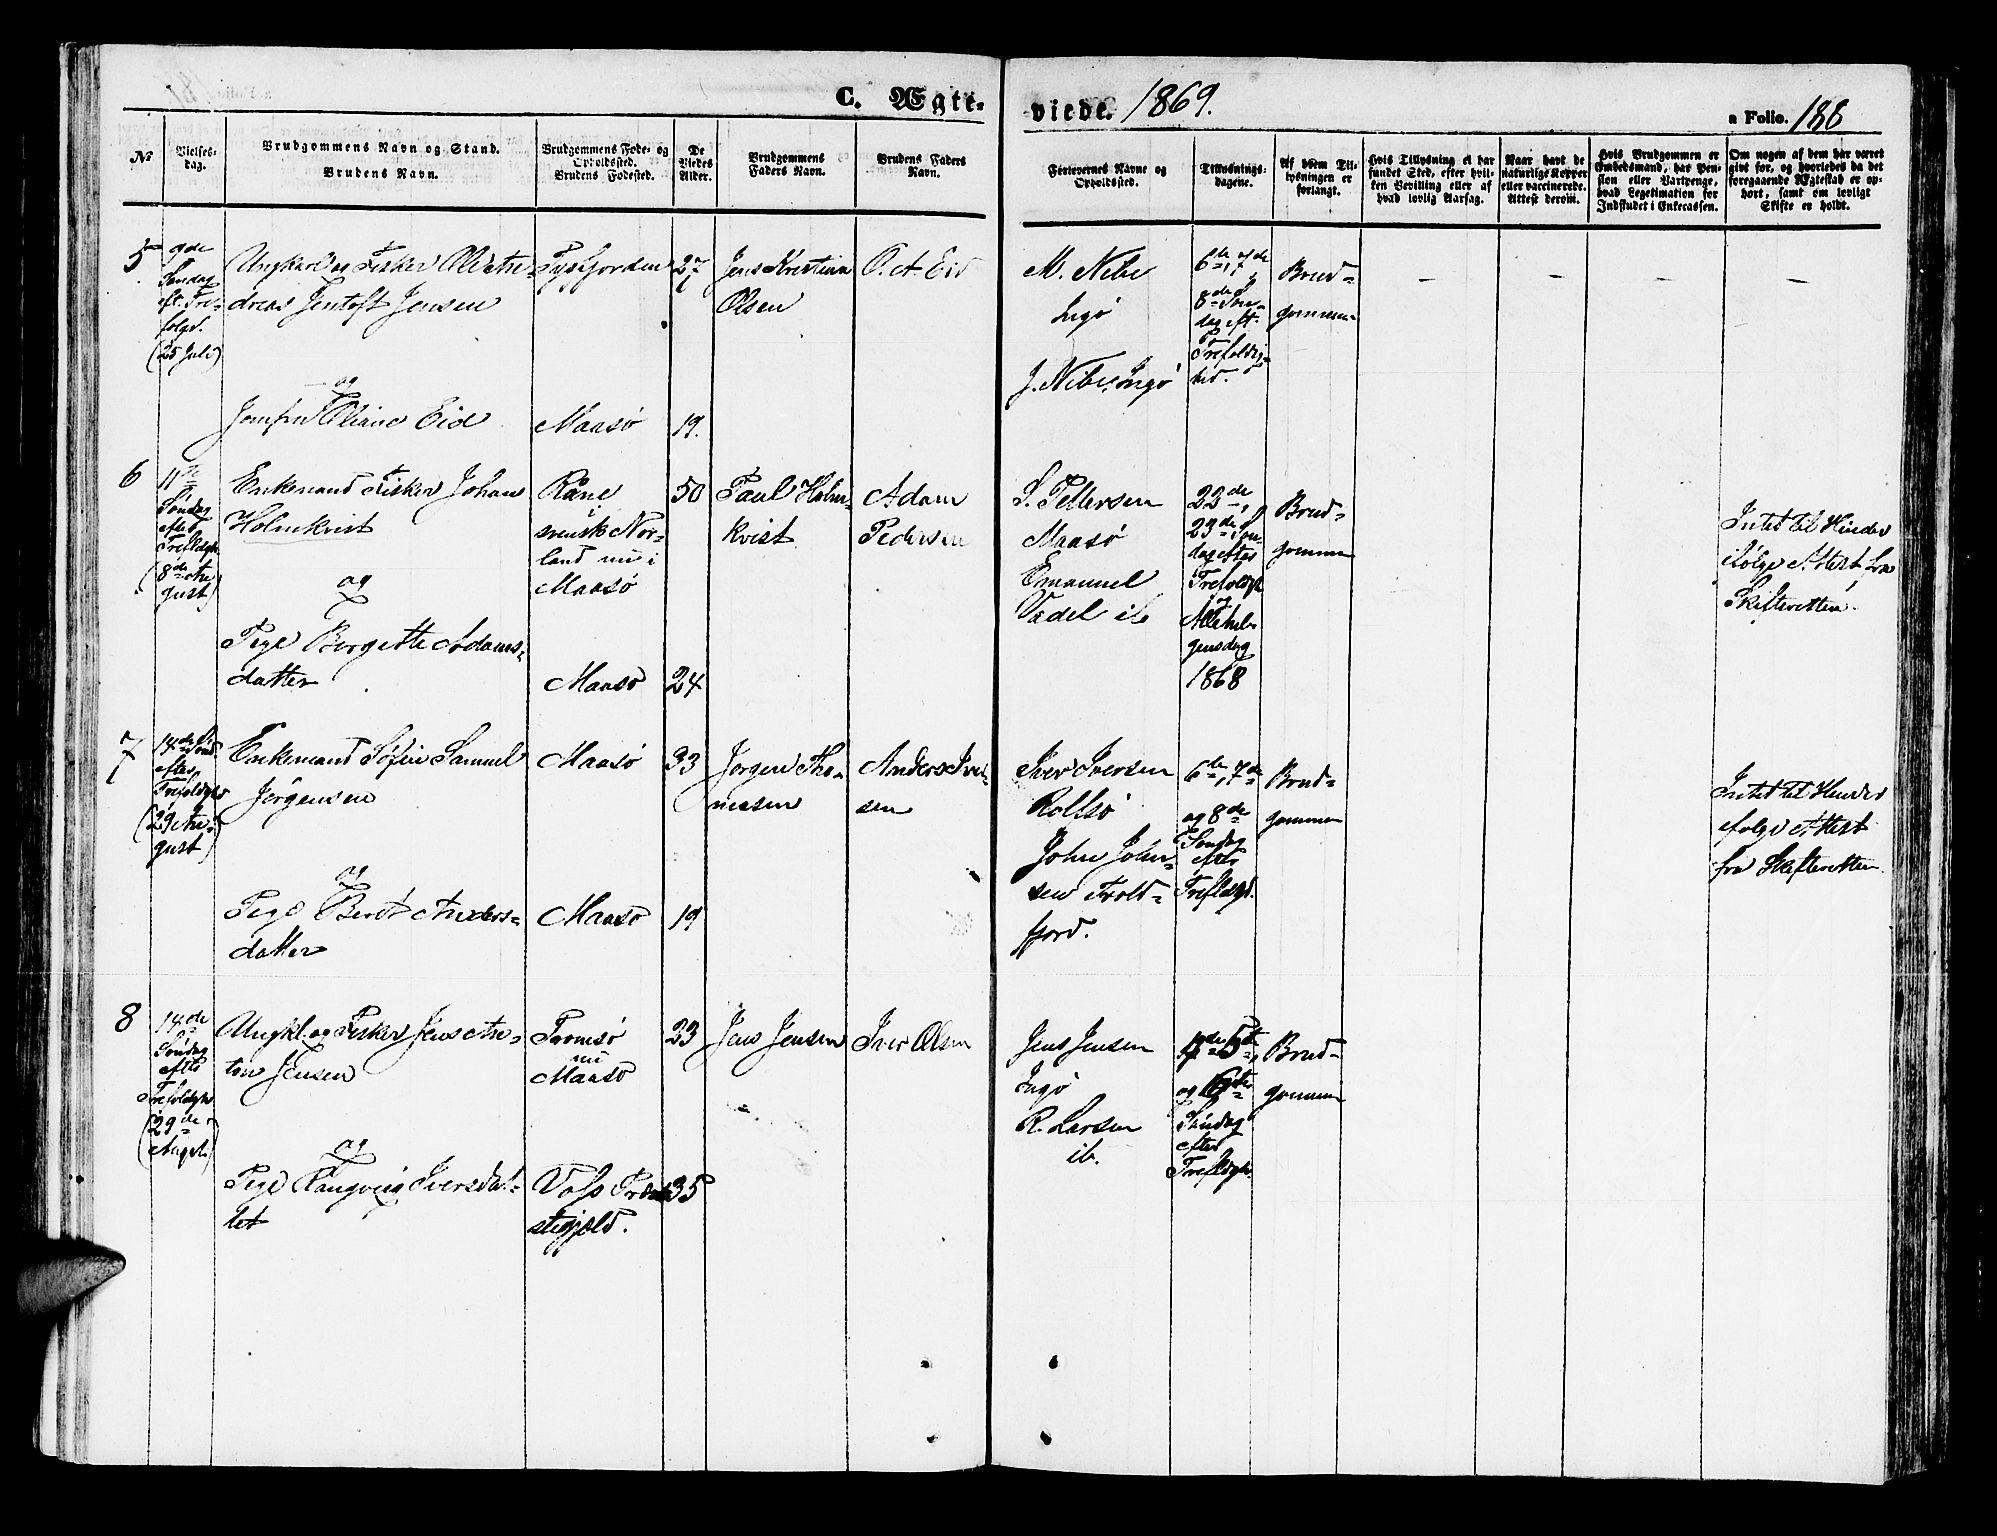 C. Ægte-
viede. 1869.
a Folio. 186
No
Vielses-
dag.
Brudgommens Navn og Stand.
Brudens Navn.
Brudgommens Føde- og
Opholdssted.
Brudens Fødested.
De
Viedes
Alder.
Brudgommens
Faders Navn.
Brudens Faders
Navn.
Forlovernes Navne og
Opholdssted.
Tillysnings-
dagene.
Af hvem Til-
lysningen er
forlangt.
Hvis Tillysning ei har
fundet Sted, efter hvil-
ken Bevilling eller af
hvad lovlig Aarsag.
Naar havt de
naturlige Kopper
eller vaccinerede.
Attest derom.
Hvis Brudgommen er
Embedsmand, har Pen-
sion eller Vartpenge,
hvad Legitimation for
Indskudet i Enkecassen.
Om nogen af dem har været
gift før, og hvorledes da det
foregaaende Ægteskab er op-
hørt, samt om lovligt
Skifte er holdt.
5
9de
Søndag
eft. Tre-
foldgd.
(25 Juli)
Ungkarl og Fisker Ole An-
dreas Jentoft Jensen
og
Jomfru Eliane Eid
Tysfjorden
Maasø
27
19.
Jens Kristian
Olsen
O. A. Eid
M. Nibe
Ingø
J. Nibe, Ingø
6de, 7de
8de Søn-
dag eft.
Trefoldig-
hed.
Brud-
gommen
– – – –
6
11de
Søndag
efter
Trefoldgh.
(8de Au
gust)
Enkemand Fisker Johan
Holmkvist
og
Pige Borgitte Adams-
datter
Råne
i
svensk Nor-
land nu i
Maasø
Maasø
50
24
Paul Holm-
kvist
Adam
Pedersen
S. Pettersen
Maasø
Emanuel
Vadel ib
22de,
23de Søn-
dag efter
Trefoldgh
og
Allehel-
gensdag
1868
Brud-
gommen
Intet til Hinder
ifølge Attest fra
Skifteretten.
7
14de Sønd.
efter
Trefoldghd
(29 Au-
gust)
Enkemand Søfin Samuel
Jørgensen
og
Pige Berit Anders-
datter
Maasø
Maasø
33
19
Jørgen Tho-
mesen
Anders Iver-
sen
Iver Iversen
Rolfsø
John John-
sen Trold-
fjord.
6de, 7de
og 8de
Søndag
efter
Trefldghd.
Brud-
gommen
Intet til Hinder
ifølge Attest
fra Skifteretten
8
14de
Søndag
efter
Trefoldgh.
(29de
Augst.)
Ungkl. og Fisker Jens An-
ton Jensen
og
Pige Rangveig Iversdat-
ter
Tromsø
nu
Maasø
Voss Præ-
stegjæld.
23
35
Jens Jensen
Iver Olsen
Jens Jensen
Ingø
R. Larsen
ib.
5te,
og 6te
Søndag
efter
Trefldgh.
Brud-
gommen